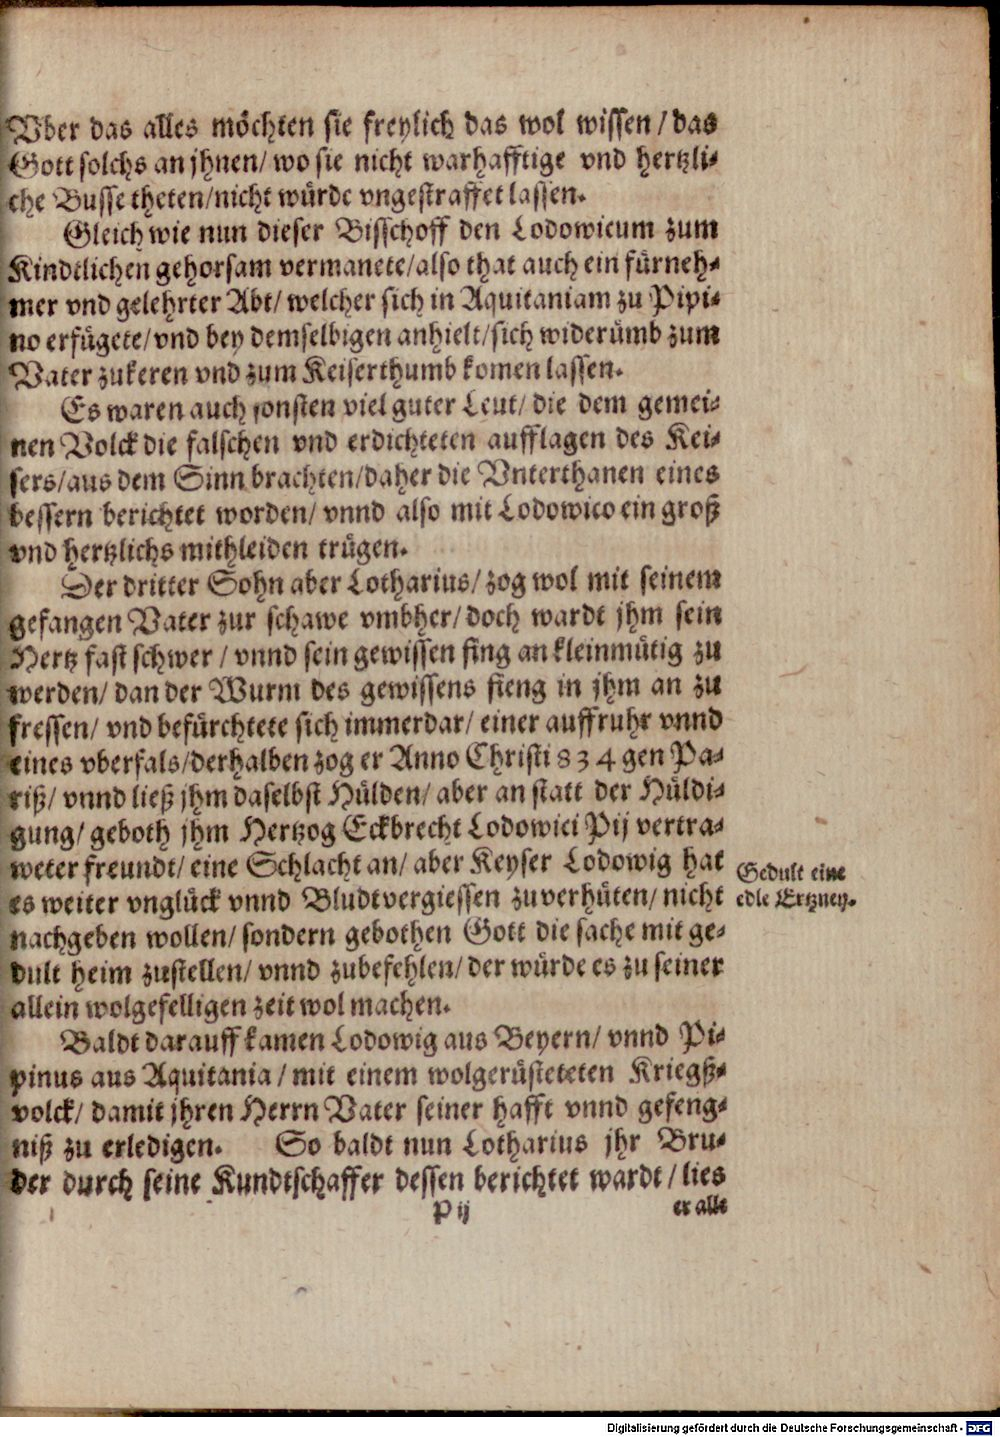 Vber das alles möchten sie freylich das wol wissen / das
Gott solchs an jhnen / wo sie nicht warhafftige vnd hertzli⸗
che Busse theten / nicht würde vngestraffet lassen.
Gleich wie nun dieser Bisschoff den Lodowicum zum
Kindtlichen gehorsam vermanete / also that auch ein fürneh⸗
mer vnd gelehrter Abt / welcher sich in Aquitaniam zu Pipi⸗
no erfügete / vnd bey demselbigen anhielt / sich widerümb zum
Vater zukeren vnd zum Keiserthumb komen lassen.
Es waren auch sonsten viel guter Leut / die dem gemei⸗
nen Volck die falschen vnd erdichteten aufflagen des Kei⸗
sers / aus dem Sinn brachten / daher die Vnterthanen eines
bessern berichtet worden / vnnd also mit Lodowico ein groß
vnd hertzlichs mithleiden trügen.
Der dritter Sohn aber Lotharius / zog wol mit seinem
gefangen Vater zur schawe vmbher / doch wardt jhm sein
Hertz fast schwer / vnnd sein gewissen fing an kleinmütig zu
werden / dan der Wurm des gewissens fieng in jhm an zu
fressen / vnd befürchtete sich immerdar / einer auffruhr vnnd
eines vberfals / derhalben zog er Anno Christi 834 gen Pa⸗
riß / vnnd ließ jhm daselbst Hülden / aber an statt der Hüldi⸗
gung / geboth jhm Hertzog Eckbrecht Lodowici Pij vertra⸗
weter freundt / eine Schlacht an / aber Keyser Lodowig hat
es weiter vnglück vnnd Bludtvergiessen zuverhüten / nicht
nachgeben wollen / sondern gebothen Gott die sache mit ge⸗
dult heim zustellen / vnnd zubefehlen / der würde es zu seiner
allein wolgefelligen zeit wol machen.
Gedult eine
edle Ertzney.
Baldt darauff kamen Lodowig aus Beyern / vnnd Pi⸗
pinus aus Aquitania / mit einem wolgerüsteteten Kriegß⸗
volck / damit jhren Herrn Vater seiner hafft vnnd gefeng⸗
niß zu erledigen. So baldt nun Lotharius jhr Bru⸗
der durch seine Kundtschaffer dessen berichtet wardt / lies
P ij er alle
Digitalisierung gefördert durch die Deutsche Forschungsgemeinschaft - DFG